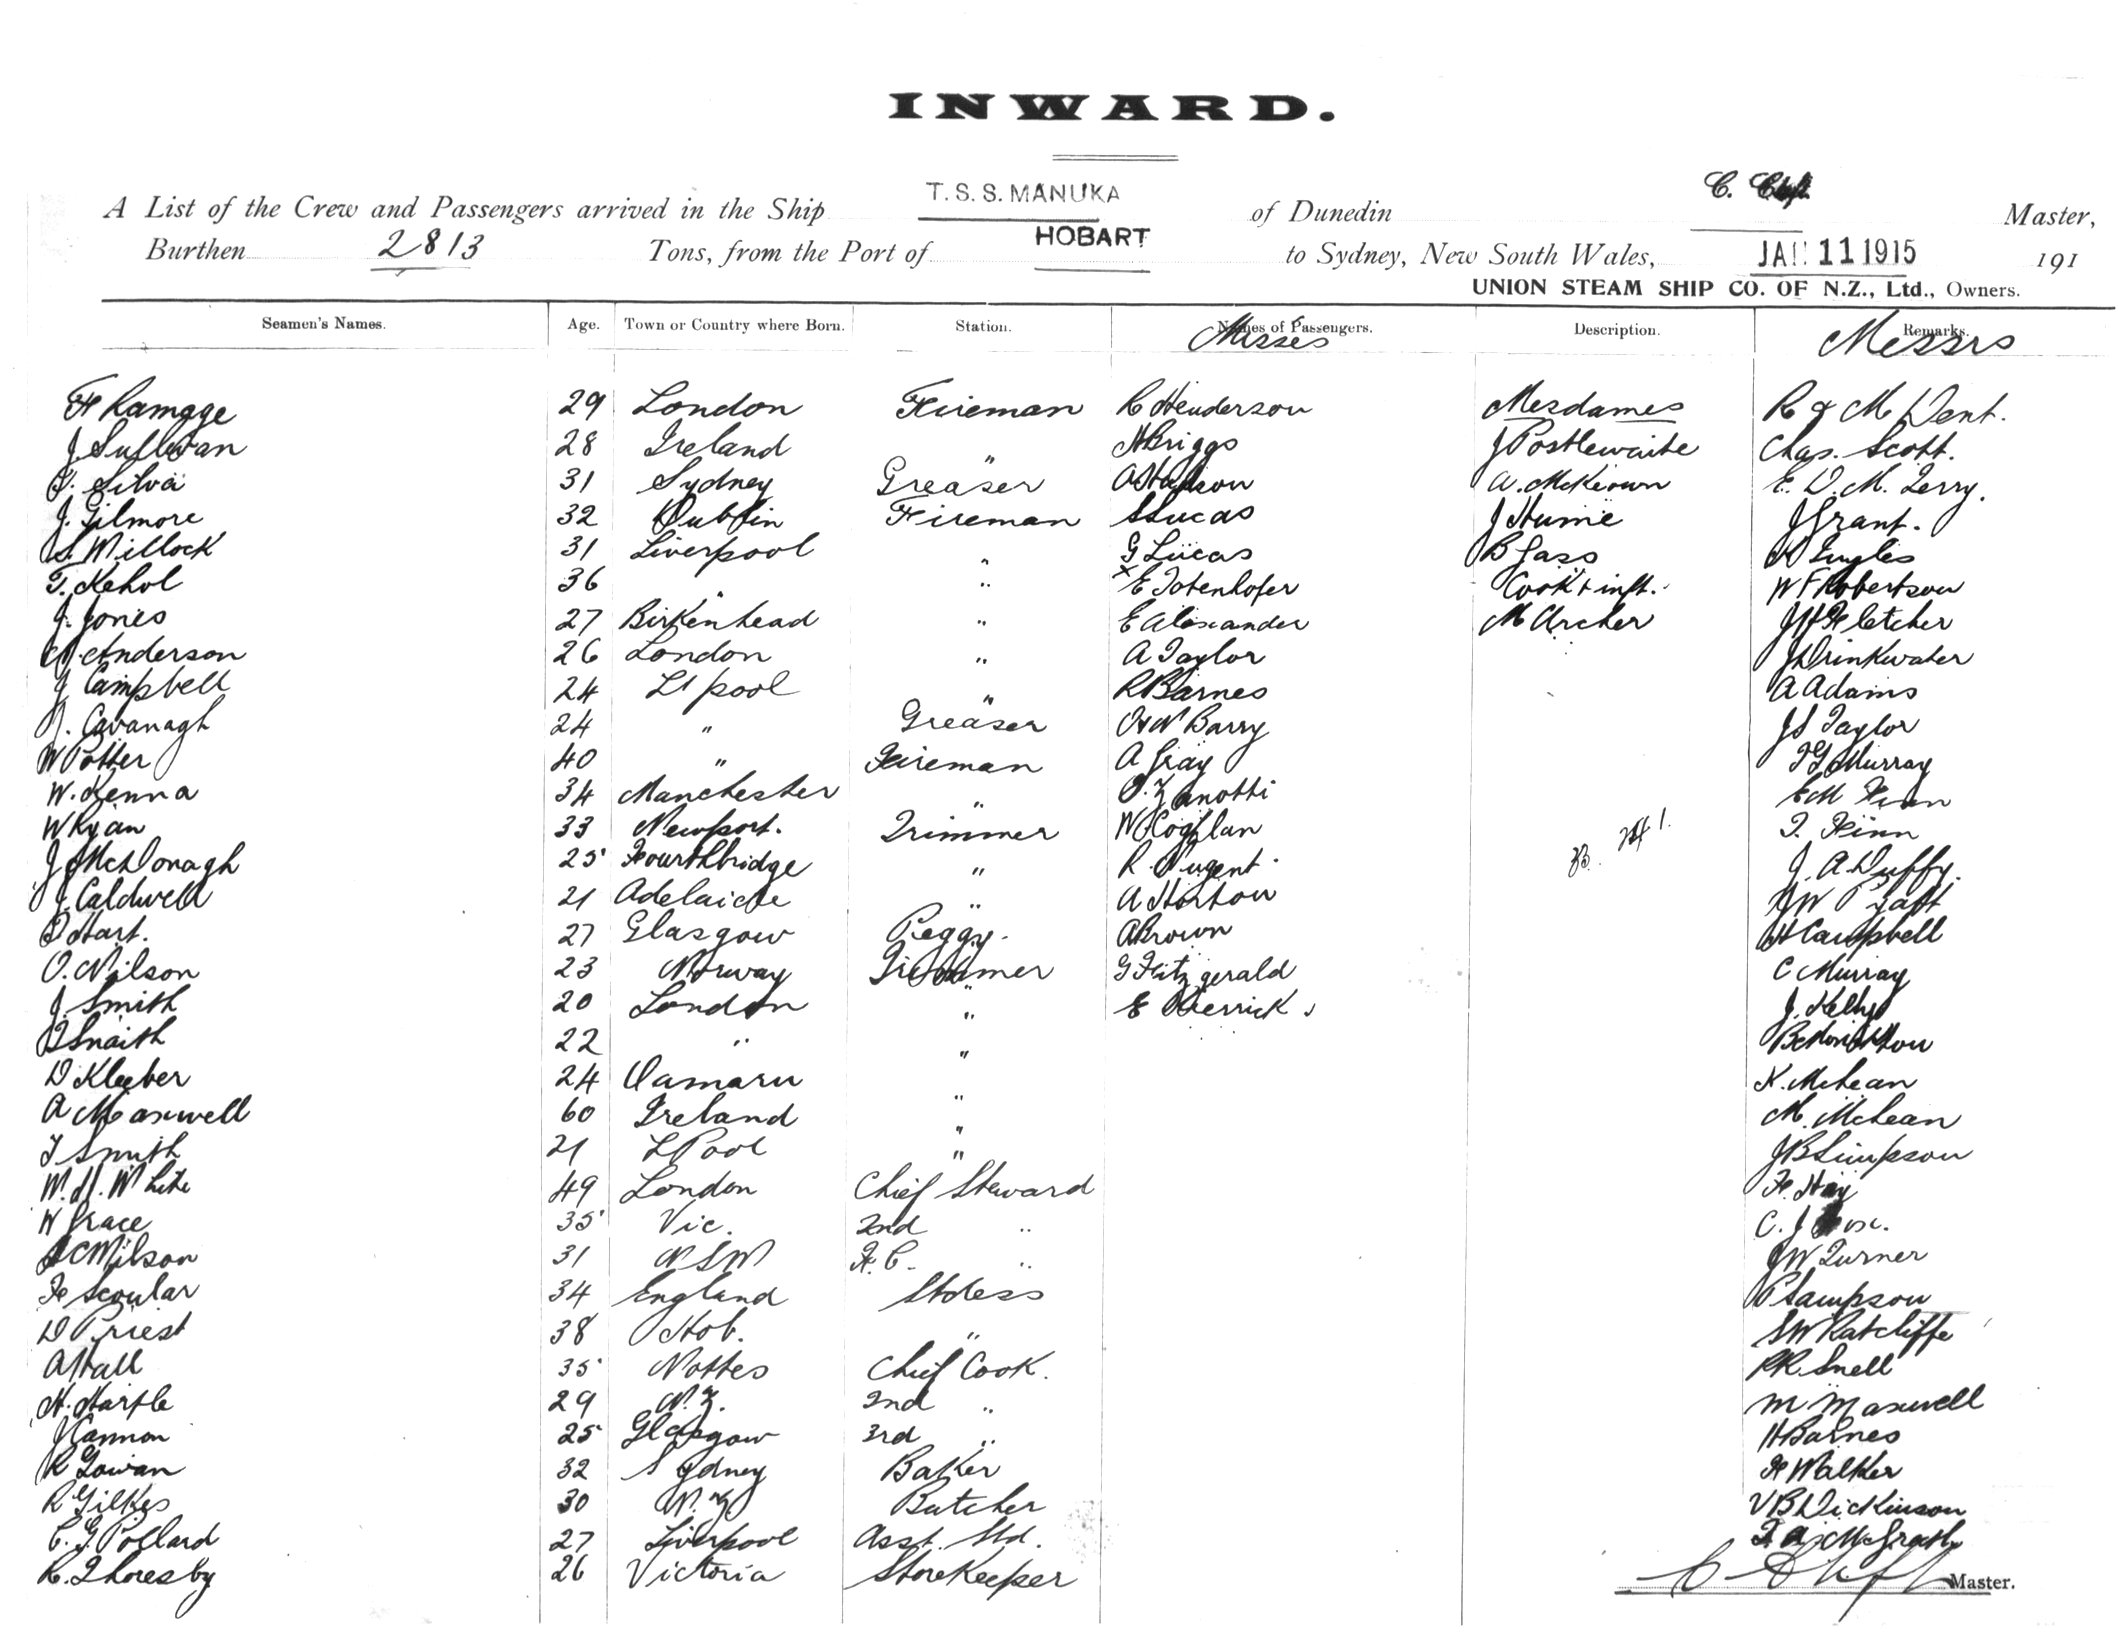 INWARD.
A List of the Crew and Passengers arrived in the Ship T.S.S. MANUKA of Dunedin C. Master,
Burthen 2813 Tons, from the Port of HOBART to Sydney, New South Wales, JAN 11 1915 191
UNION STEAM SHIP CO. OF N.Z., Ltd., Owners.
Seamen's Names. Age. Town or Country where Born. Station. Names of Passengers. Description. Remarks.
Misses Messrs
F Ramage 29 London Fireman R Henderson Mesdames R & M Dent.
J Sullivan 28 Ireland " H Briggs J Postlewaite Chas. Scott.
Silva 31 Sydney Greaser A. McKeown E. D. M. Terry.
J. Gilmore 32 Dublin Fireman S Lucas J Hume J Grant.
S. Millock 31 Liverpool " G Lucas B Gass Engles
T. Kehol 36 " " x E Totenhofer Cook & inft. W F Robertson
J. Jones 27 Birkenhead " E Alexander M Archer J H Fletcher
Anderson 26 London " A Taylor J Drinkwater
J Campbell 24 L'pool " R Barnes A Adams
J. Cavanagh 24 " Greaser Barry J S Taylor
W Potter 40 " Fireman A Gray F G Murray
W. Kenna 34 Manchester " Zanotti E M Finn
W Ryan 33 Newport. Trimmer W Coghlan T. Finn
J McDonagh 25 Fourthbridge " R. Nugent. J. A. Duffy.
J. Caldwell 21 Adelaide " A Horton J W
D Hart. 27 Glasgow Peggy. A Brown H Campbell
O. Nilson 23 Norway Trimmer G Fitzgerald C Murray
J. Smith 20 London " E Kerrick J. Kelly
T Snaith 22 " "
D Kleeber 24 Oamaru " K. McLean
A Maxwell 60 Ireland " M. McLean
T Smith 21 L Pool " J B Simpson
W. H. White 49 London Chief Steward F. Hay
W Grace 35 Vic. 2nd " C. J
C Wilson 31 N S W F. C. " J W Turner
F Scoular 34 England Stdess P Sampson
D Priest 38 Hob. " S W Ratcliffe
A Hall 35 Nottes Chief Cook. R R Snell
H. Hartle 29 N.Z. 2nd " M Maxwell
J Cannon 25 Glasgow 3rd " H Barnes
R Gowan 32 Sydney Baker F Walker
R Gilkes 30 N.Z Butcher V B Dickinson
C. G Pollard 27 Liverpool Asst. Std. McGrath
R. Thoresby 26 Victoria Storekeeper
Master.